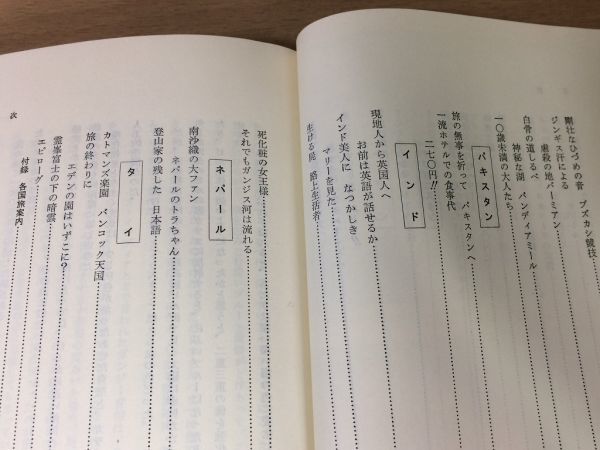 剛壮なひづめの音　ブズカシ競技
ジンギス汗による
虐殺の地バーミアン
白骨の道しるべ
神秘な湖　バンディアミール
一〇歳未満の大人たち
パキスタン
旅の無事を祈って　パキスタンへ
一流ホテルでの食事代
二七〇円!!
インド
現地人から英国人へ
お前は英語が話せるか
インド美人に　なつかしき
マリーを見た
生ける屍　路上生活者
死化粧の女王様
それでもガンジス河は流れる
ネパール
南沙織の大ファン
ネパールのトラちゃん
登山家の残した　日本語
タイ
カトマンズ楽園　バンコック天国
旅の終わりに
エデンの園はいずこに？
霊峯富士の下の暗雲
エピローグ
付録　各国旅案内
次